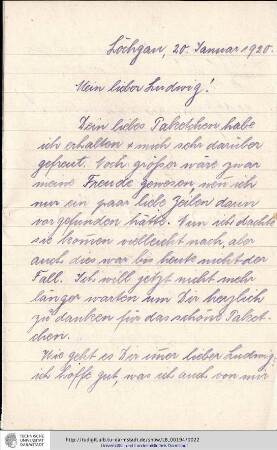 Löchgau, 20. Januar 1920.
Mein lieber Ludwig!
Dein liebes Paketchen habe
ich erhalten & mich sehr darüber
gefreut. Noch größer wäre zwar
meine Freude gewesen, wen ich
nur ein paar liebe Zeilen darin
vorgefunden hätte. Nun ich dachte
sie komen vielleicht nach, aber
auch dies war bis heute nicht der
Fall. Ich will jetzt nicht mehr
länger warten um Dir herzlich
zu danken für das schöne Paket-
chen.
Wie geht es Dir imer lieber Ludwig?
ich hoffe gut, was ich auch von mir
TECHNISCHE
UNIVERSITÄT
DARMSTADT
Universitäts- und Landesbibliothek Darmstadt